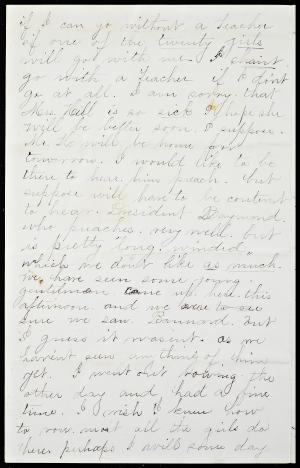 if I can go without a teacher
if one of the twenty girls
will go with me. I shant
go with a teacher if I dont
go at all. I am sorry that
Mrs. Hill is so sick I hope she
will be better soon. I suppose
Mr. H. will be home
tomorrow. I would like to be
there to hear him preach. but
suppose will have to be content
to hear President Raymond
who preaches very well but
is pretty "long winded"
which we don't like as much.
We have seen some young
gentlemen come up here this
afternoon and we to see
sure we saw but
I guess it wasent. as we
havent seen anything of him
yet. I went out rowing the
other day and had a fine
time. I wish I knew how
to row. most all the girls do
here perhaps I will some day